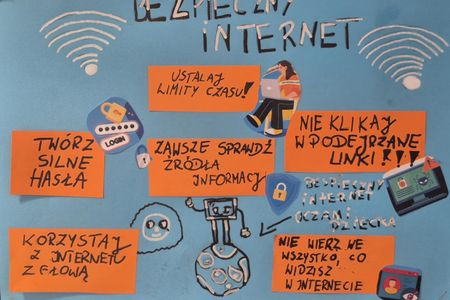 BEZPIECZNY
INTERNET
USTALAJ
LIMITY CZASU!
TWÓRZ
SILNE
HASŁA
LOGIN
ZAWSZE SPRAWDŹ
ŹRÓDŁA
INFORMACJI
NIE KLIKAJ
W PODEJRZANE
LINKI!!!
BEZPIECZNY
INTERNET
OCZAMI
DZIECKA
KORZYSTAJ
Z INTERNETU
Z GŁOWĄ
NIE WIERZ WE
WSZYSTKO, CO
WIDZISZ
W INTERNECIE